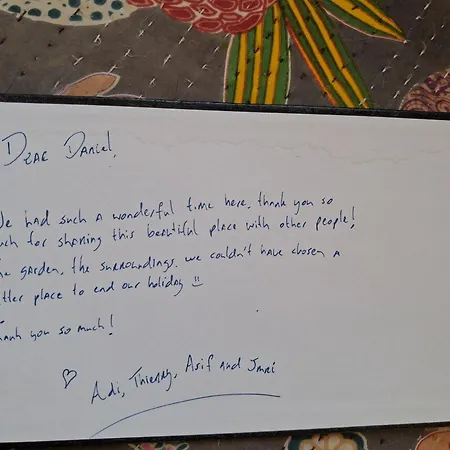 Dear Daniel,
We had such a wonderful time here, thank you so
much for sharing this beautiful place with other people!
The garden, the surroundings, we couldn't have chosen a
better place to end our holiday
Thank you so much!
♡ Adi, Thierry, Asif and Imri